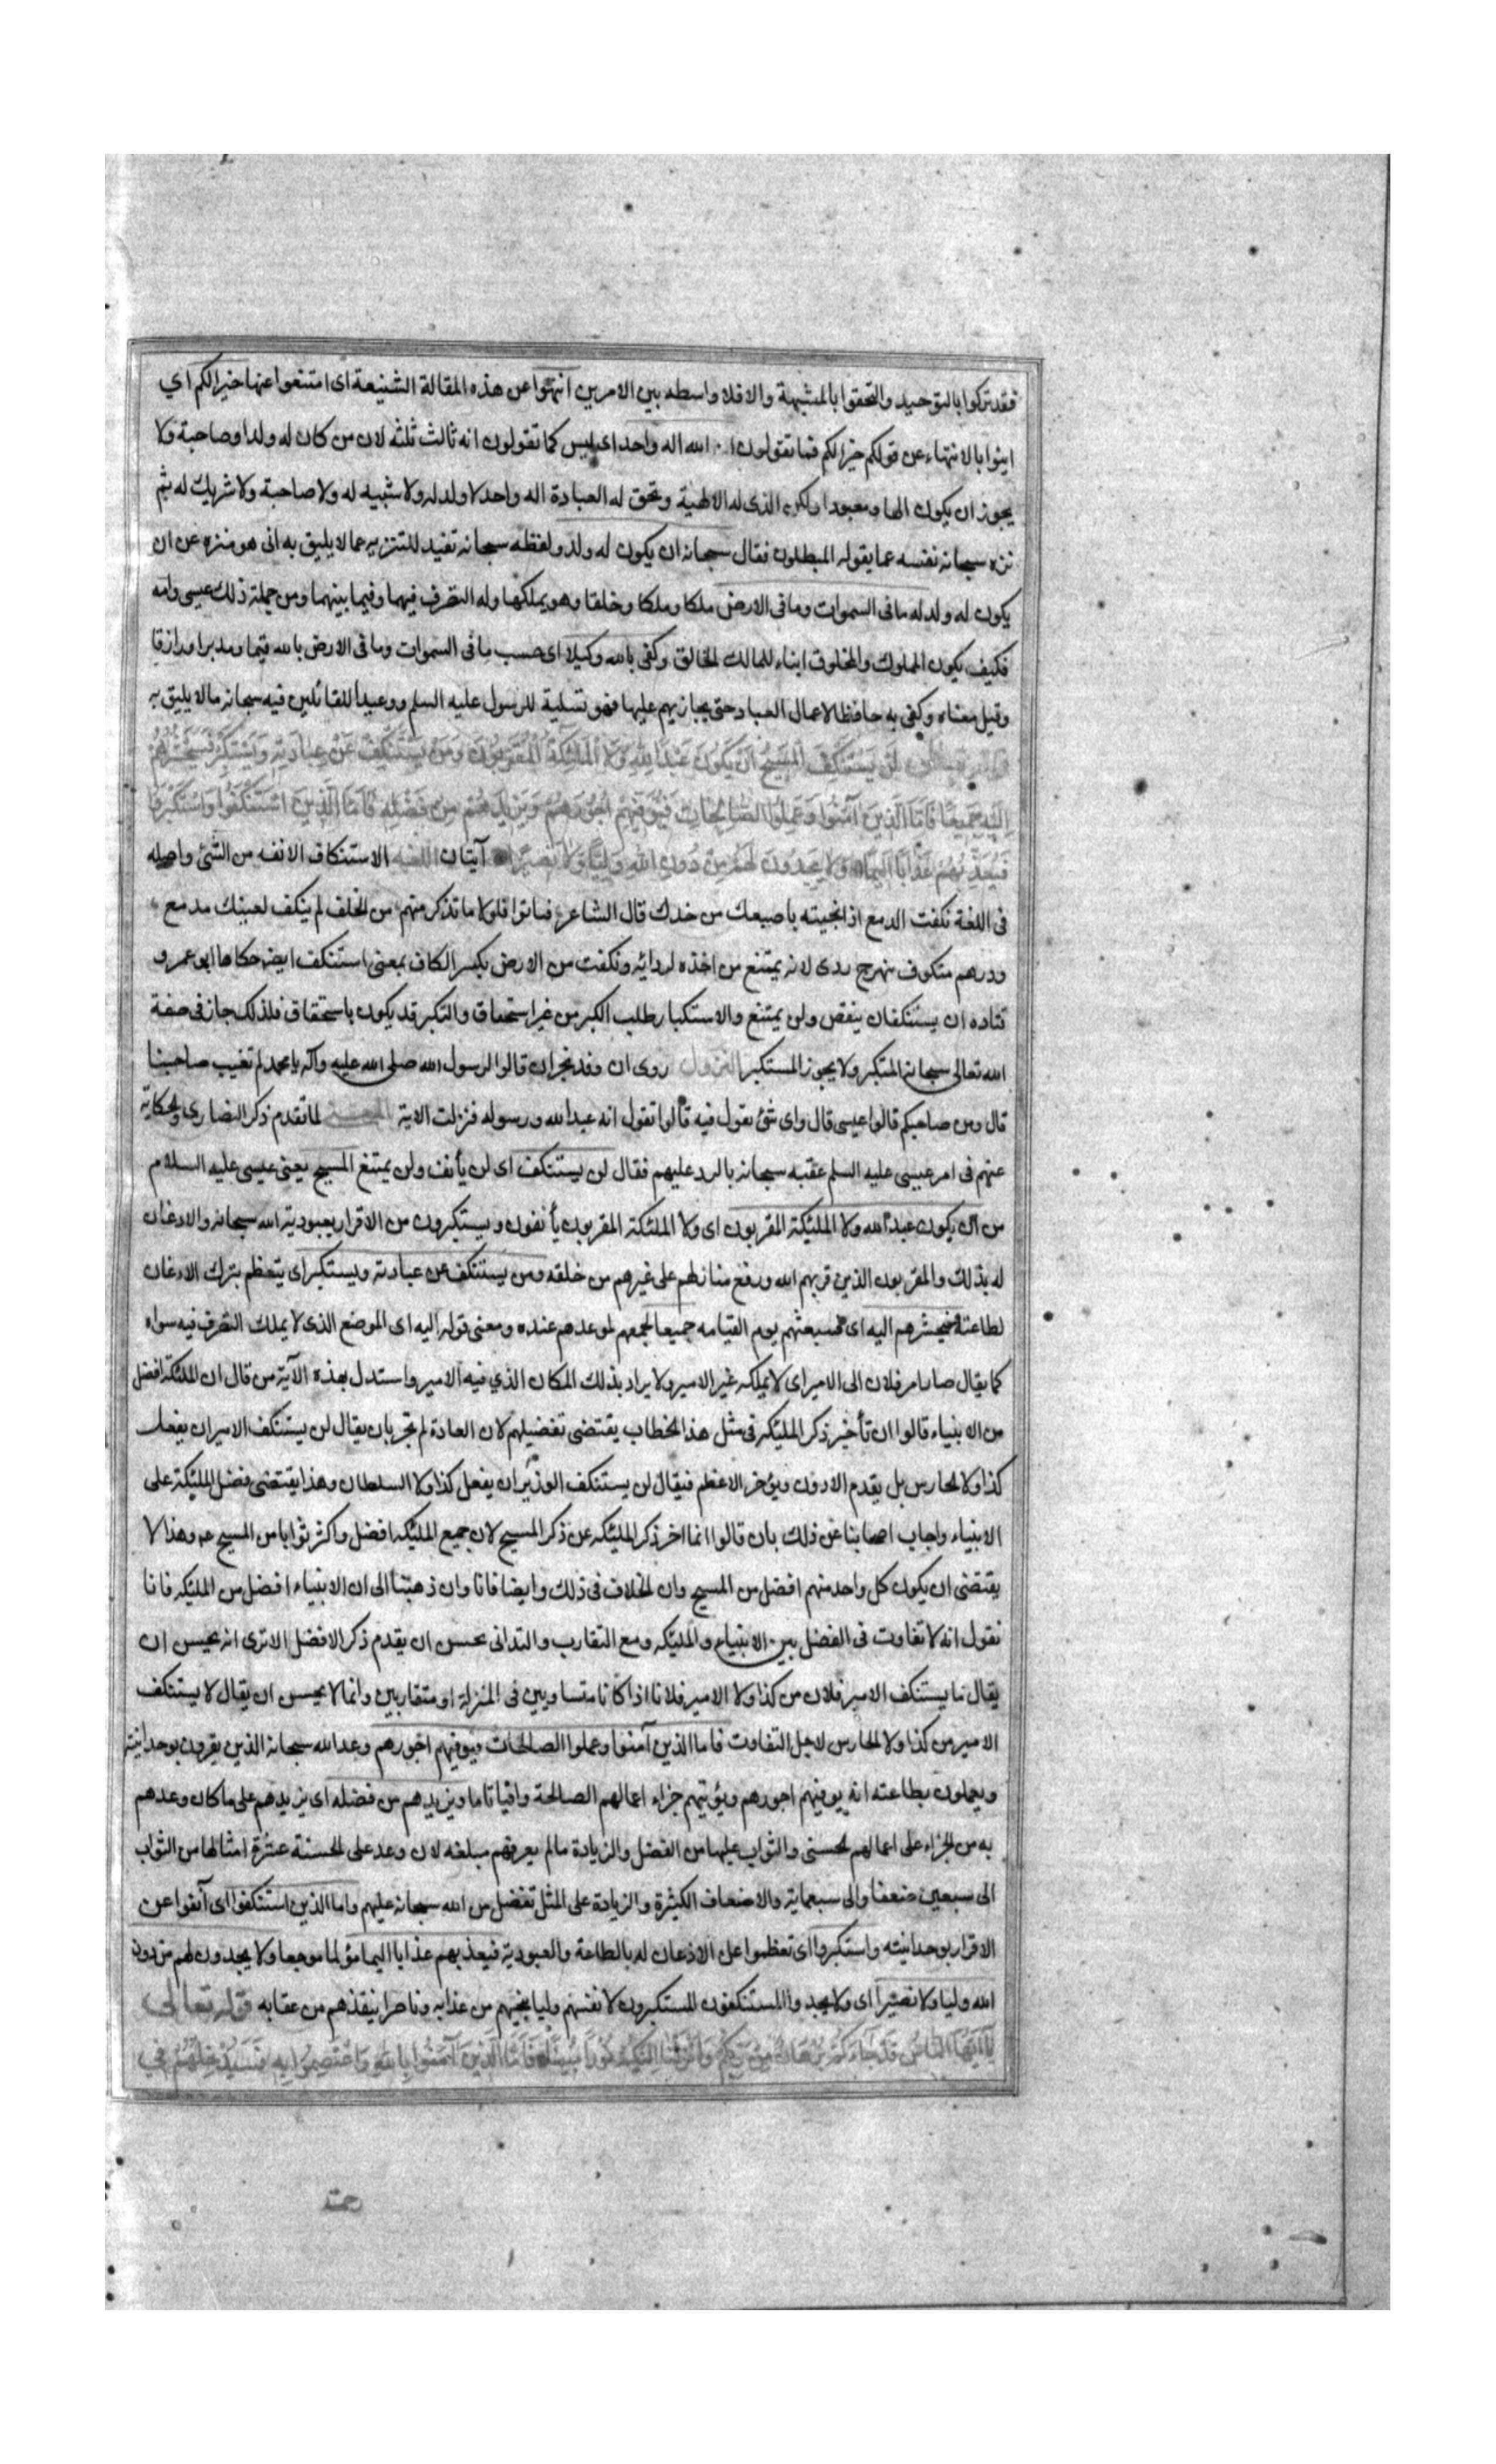 فقد تركوا بالتوحيد والتحقوا بالمشبهة والا فلا واسطه بين الامرين انتهوا عن هذه المقالة الشنيعة اى امتنعوا عنها خيرا لكم اي
ايتوا بالانتهاء عن قولكم خيرا لكم فما تقولون انما الله اله واحد اى ليس كما تقولون انه ثالث ثلثه لان من كان له ولدا وصاحبة ولا
يجوز ان يكون الها ومعبودا ولكن الذى له الالهية وتحق له العبادة اله واحد لا ولد له ولا شبيه له ولا صاحبة ولا شريك له ثم
نزه سبحانه نفسه عما يقوله المبطلون فقال سبحانه ان يكون له ولد ولفظه سبحانه تفيد للتنزيه عما لا يليق به اى هو منزه عن ان
يكون له ولد له مافى السموات ومافى الارض ملكا وملكا وخلقا وهو يملكها وله التصرف فيهما وفيما بينهما ومن جملة ذلك عيسى وامه
فكيف يكون المملوك والمخلوق ابناء للمالك الخالق وكفى بالله وكيلا اى حسب مافى السموات ومافى الارض بالله قيما ومدبرا ورازقا
وقيل معناه وكفى به حافظا لاعمال العباد حتى يجازيهم عليها فهو تسلية للرسول عليه السلم ووعيدا للقائلين فيه سبحانه مالا يليق به
قوله تعالى لَنْ يَسْتَنْكِفَ الْمَسِيحُ اَنْ يَكُونَ عَبْدًا لِلّهِ وَلَا الْمَلئِكَةُ الْمُقَرَّبُونَ وَمَنْ يَسْتَنْكِفْ عَنْ عِبَادَتِهِ وَيَسْتَكْبِرْ فَسَيَحْشُرُهُمْ
اِلَيْهِ جَمِيعًا فَاَمَّا الَّذِينَ آمَنُوا وَعَمِلُوا الصَّالِحَاتِ فَيُوَفِّيهِمْ اُجُورَهُمْ وَيَزِيدُهُمْ مِنْ فَضْلِهِ فَاَمَّا الَّذِينَ اسْتَنْكَفُوا وَاسْتَكْبَرُوا
فَيُعَذِّبُهُمْ عَذَابًا اَلِيمًا وَلَا يَجِدُونَ لَهُمْ مِنْ دُونِ اللهِ وَلِيًّا وَلَا نَصِيرًا آيتان اللغه الاستنكاف الانفه من الشئ واصله
فى اللغة نكفت الدمع اذا نحيته باصبعك من خدك قال الشاعر فباتوا فلولا ما تذكر منهم من الخلف لم ينكف لعينك مدمع
ودرهم منكوف بنهرج ردى لانه يمتنع من اخذه لردائه ونكفت من الارض بكسر الكاف بمعنى استنكف ايضه حكاها ابو عمرو
قتاده ان يستنكفان ينقص ولن يمتنع والاستكبار طلب الكبر من غير استحقاق والتكبر قد يكون باستحقاق فلذلك جاز فى صفة
الله تعالى سبحانه المتكبر ولا يجوز المستكبر النزول روى ان وفد نجران قالوا لرسول الله صلى الله عليه وآله يا محمد لم تعيب صاحبنا
قال ومن صاحبكم قالوا عيسى قال واى شئ نقول فيه قالوا تقول انه عبد الله ورسوله فنزلت الاية المعنى لما تقدم ذكر النصارى والحكاية
عنهم فى امر عيسى عليه السلم عقبه سبحانه بالرد عليهم فقال لن يستنكف اى لن يأنف ولن يمتنع المسيح يعنى عيسى عليه السلام
من ان يكون عبدا لله ولا الملئكة المقربون اى ولا الملئكة المقربون يأنفون ويستكبرون من الاقرار بعبودية الله سبحانه والاذعان
له بذلك والمقربون الذين قربهم الله ورفع منازلهم على غيرهم من خلقه ومن يستنكف عن عبادته ويستكبر اى يتعظم بترك الاذعان
لطاعته فسيحشرهم اليه اى فسيبعثهم يوم القيامه جميعا لجمعهم لموعدهم عنده ومعنى قوله اليه اى الموضع الذى لا يملك التصرف فيه سواه
كما يقال صار امر فلان الى الامير اى لا يملكه غير الامير ولا يراد بذلك المكان الذي فيه الامير واستدل بهذه الآية من قال ان الملئكة افضل
من الانبياء قالوا ان تأخير ذكر الملئكه فى مثل هذا الخطاب يقتضى تفضيلهم لان العادة لم تجر بان يقال لن يستنكف الامير ان يفعل
كذا ولا الحارس بل يقدم الادون ويؤخر الاعظم فيقال لن يستنكف الوزير ان يفعل كذا ولا السلطان وهذا يقتضى فضل الملئكة على
الانبياء واجاب اصحابنا عن ذلك بان قالوا انما اخر ذكر الملئكه عن ذكر المسيح لان جميع الملئكه افضل واكثر ثوابا من المسيح عم وهذا لا
يقتضى ان يكون كل واحد منهم افضل من المسيح وان الخلاف فى ذلك وايضا فانا وان ذهبنا الى ان الانبياء افضل من الملئكه فانا
نقول انه لا تفاوت فى الفضل بين الانبياء والملئكه ومع التقارب والتدانى يحسن ان يقدم ذكر الافضل الا ترى انه يحسن ان
يقال ما يستنكف الامير فلان من كذا ولا الامير فلان اذا كانا متساويين فى المنزلة او متقاربين وانما لا يحسن ان يقال لا يستنكف
الامير من كذا ولا الحارس لاجل التفاوت فاما الذين آمنوا وعملوا الصالحات فيوفيهم اجورهم وعد الله سبحانه الذين يقرون بوحدانيته
ويعملون بطاعته انه يوفيهم اجورهم ويؤتيهم جزاء اعمالهم الصالحة وافيا تاما ويزيدهم من فضله اى يزيدهم على ما كان وعدهم
به من الجزاء على اعمالهم الحسنى والثواب عليها من الفضل والزيادة مالم يعرفهم مبلغه لان وعد على الحسنة عشرة امثالها من الثواب
الى سبعين ضعفا والى سبعماية والاضعاف الكثيرة والزيادة على المثل تفضل من الله سبحانه عليهم واما الذين استنكفوا اى آنفوا عن
الاقرار بوحدانيته واستكبروا اى تعظموا عل الاذعان له بالطاعة والعبودية فيعذبهم عذابا اليما مؤلما موجعا ولا يجدون لهم من دون
الله وليا ولا نصيرا اى ولا يجد والمستنكفون المستكبرون لانفسهم وليا ينجيهم من عذابه وناصرا ينقذهم من عقابه قوله تعالى
يَا اَيُّهَا النَّاسُ قَدْ جَاءَكُمْ بُرْهَانٌ مِنْ رَبِّكُمْ وَاَنْزَلْنَا اِلَيْكُمْ نُورًا مُبِينًا فَاَمَّا الَّذِينَ آمَنُوا بِاللهِ وَاعْتَصَمُوا بِهِ فَسَيُدْخِلُهُمْ فِي
رحمة